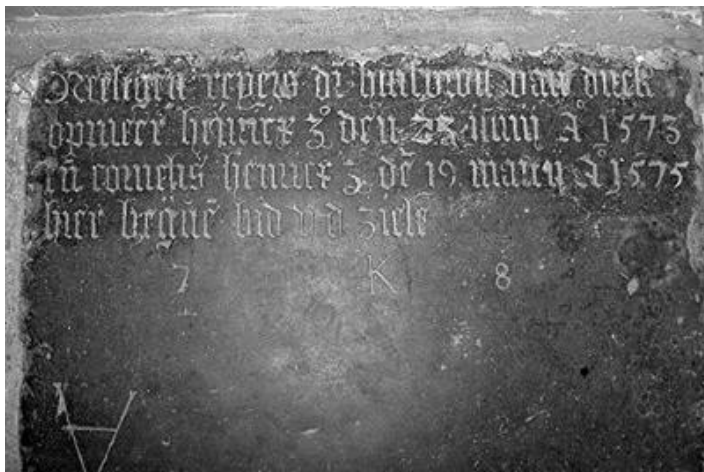 Neeltgen reyers dr huisvrou van dirck
opmeer henricx zo den 23 iunij Ao 1573
en cornelis henricx z de 19 martij Ao 1575
hier begrave bid v d ziele
7 K 8
A